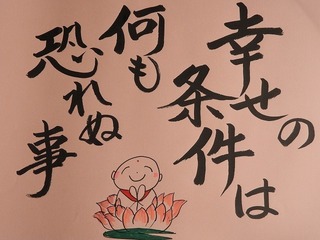 幸せの
条件は
何も
恐れぬ
事